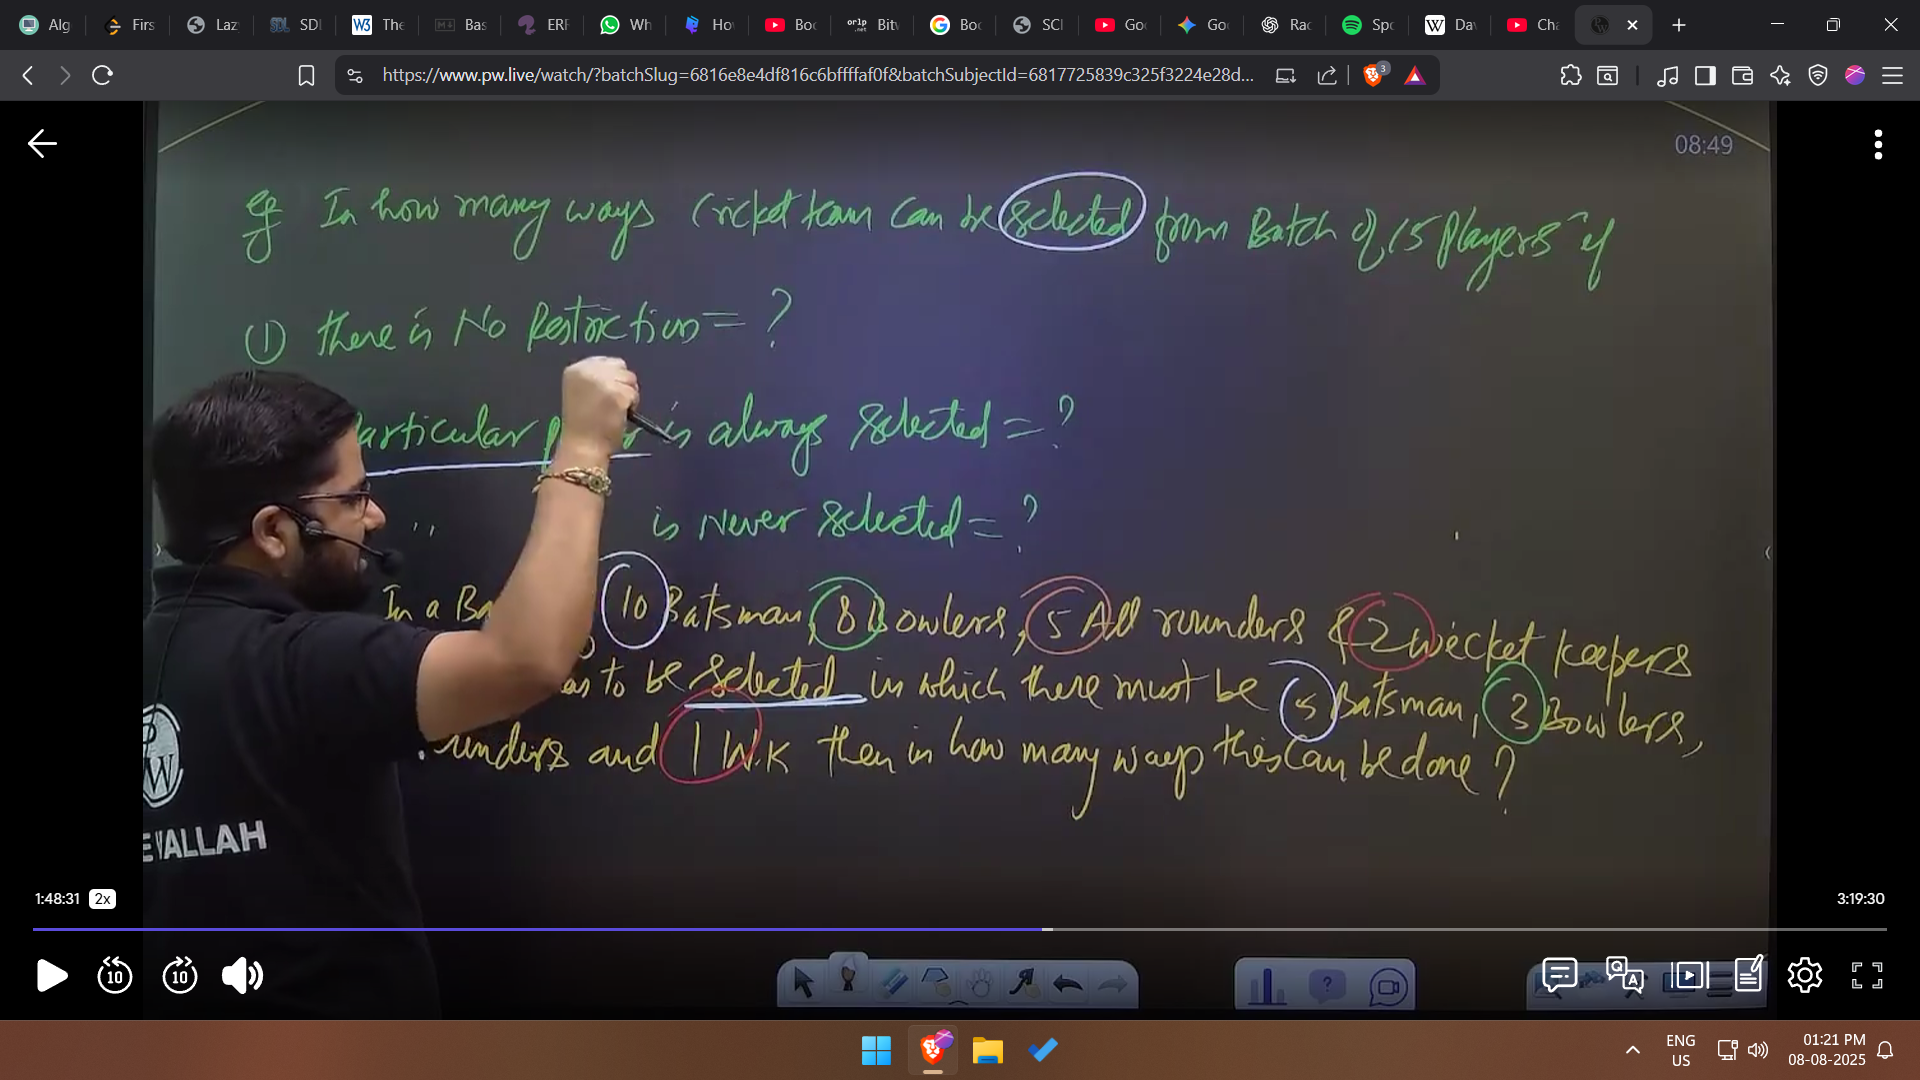 Alg
Firs
Lazy
SDI
The
Bas
ERF
Wh
Hov
Boo
Bitv
Boo
SCI
Goo
Goo
Rac
Spo
Dav
Cha
https://www.pw.live/watch/?batchSlug=6816e8e4df816c6bffffaf0f&batchSubjectId=6817725839c325f3224e28d...
3
08:49
Eg In how many ways Cricket team can be selected from Batch of 15 Players if
(1) there is No Restriction = ?
articular is always selected = ?
" is Never selected = ?
In a Ba 10 Batsman, 8 Bowlers, 5 All rounders & 2 wicket keepers
to be selected in which there must be 5 Batsman, 3 Bowlers,
unders and 1 W.K then in how many ways this Can be done ?
W
E WALLAH
1:48:31 2x
3:19:30
10
10
ENG
US
01:21 PM
08-08-2025